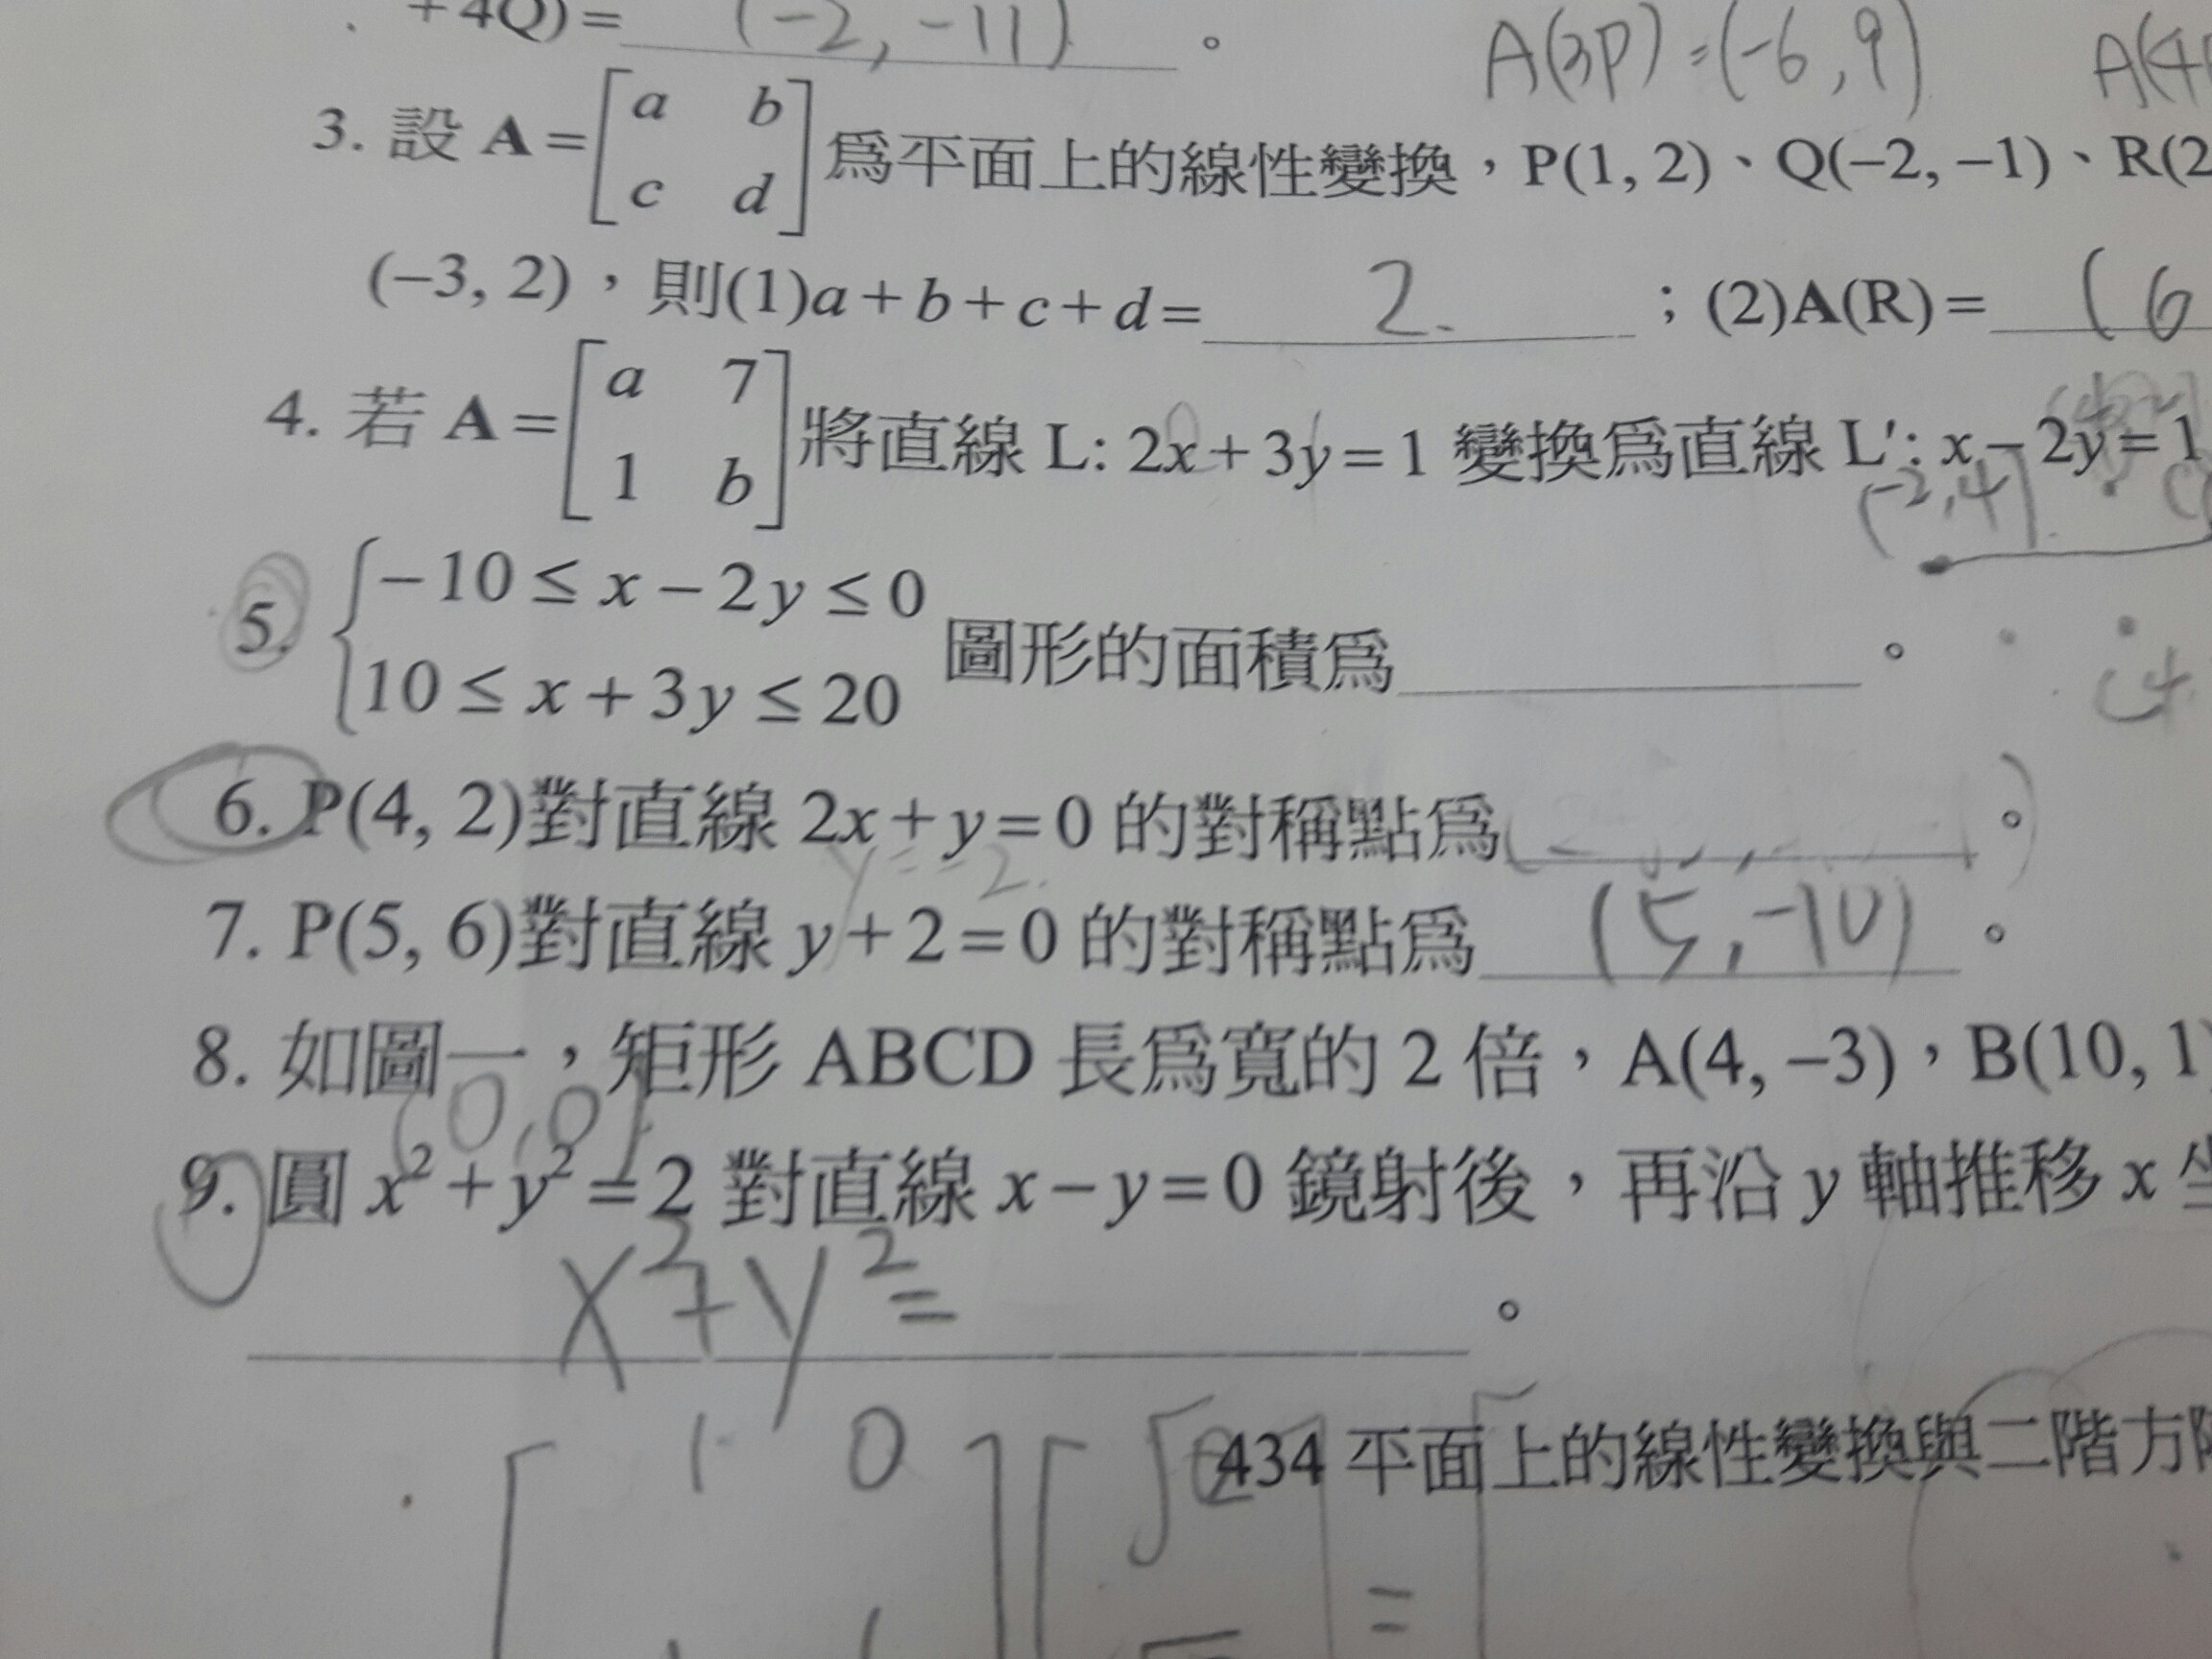 +4Q)= (-2,-11) 。
A(3P)=(-6,9)
3. 設 A=[a b
c d]為平面上的線性變換，P(1, 2)、Q(−2, −1)、R(2
(−3, 2)，則(1)a+b+c+d= 2. ；(2)A(R)= (6
4. 若 A=[a 7
1 b]將直線 L: 2x+3y=1 變換為直線 L′: x−2y=1
(-2,4)
5. {−10 ≤ x − 2y ≤ 0
10 ≤ x + 3y ≤ 20 圖形的面積為 。
6. P(4, 2)對直線 2x+y=0 的對稱點為 。
y=-2.
7. P(5, 6)對直線 y+2=0 的對稱點為 (5,-10) 。
8. 如圖一，矩形 ABCD 長為寬的 2 倍，A(4, −3)，B(10, 1)
(0,0)
9. 圓 x²+y²=2 對直線 x−y=0 鏡射後，再沿 y 軸推移 x
x²+y²= 。
1 0
434 平面上的線性變換與二階方
=